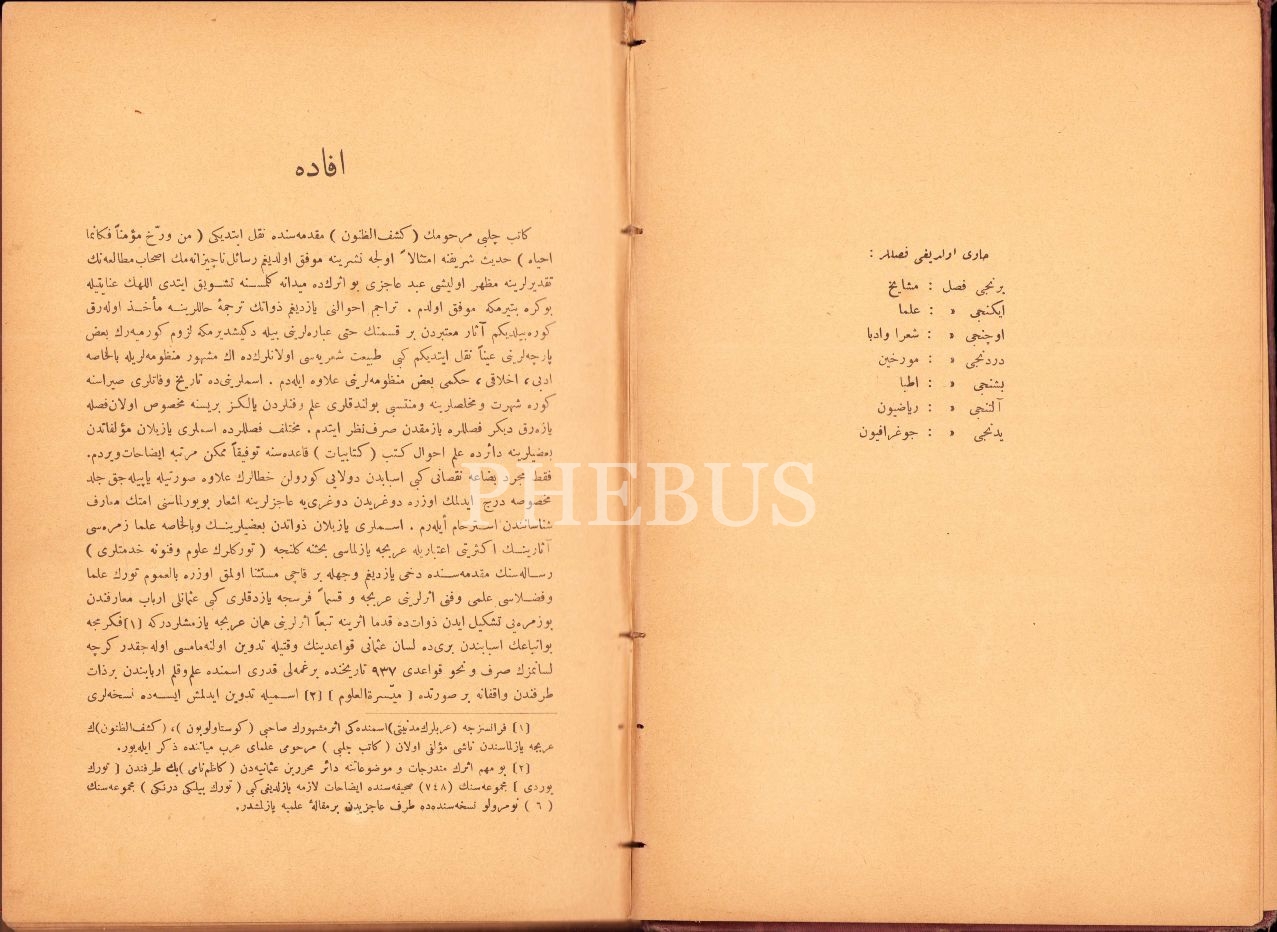 حاوی اولدیغی فصللر :
برنجی فصل : مشایخ
ایکنجی » : علما
اوچنجی » : شعرا وادبا
دردنجی » : مورخین
بشنجی » : اطبا
آلتنجی » : ریاضیون
یدنجی » : جوغرافیون
افاده
کاتب چلبی مرحومك ( کشف‌الظنون ) مقدمه‌سنده نقل ایتدیکی ( من ورّخ مؤمناً فکانما
احیاه ) حدیث شریفنه امتثالاً اولجه نشرینه موفق اولدیغم رسائل ناچیزانه‌مك اصحاب مطالعه‌نك
تقدیرلرینه مظهر اولیشی عبد عاجزی بو اثرك‌ده میدانه کلمسنه تشویق ایتدی اللهك عنایتیله
بوکره بتیرمکه موفق اولدم . تراجم احوالنی یازدیغم ذواتك ترجمهٔ حاللرینه مأخذ اوله‌رق
کوره‌بیلدیکم آثار معتبردن بر قسمنك حتی عباره‌لرینی بیله دکیشدیرمکه لزوم کورمیه‌رك بعض
پارچه‌لرینی عیناً نقل ایتدیکم کبی طبیعت شعریه‌سی اولانلرك‌ده اك مشهور منظومه‌لریله بالخاصه
ادبی ، اخلاقی ، حکمی بعض منظومه‌لرینی علاوه ایله‌دم . اسملرینی‌ده تاریخ وفاتلری صیراسنه
کوره شهرت ومخلصلرینه ومنتسبی بولندقلری علم وفنلردن یالکز بریسنه مخصوص اولان‌فصله
یازه‌رق دیکر فصللره یازمقدن صرف‌نظر ایتدم . مختلف فصللرده اسملری یازیلان مؤلفاتدن
بعضیلرینه دائرده علم احوال کتب ( کتابیات ) قاعده‌سنه توفیقاً ممکن مرتبه ایضاحات‌ویردم .
فقط مجرد بضاعه نقصانی کبی اسبابدن دولایی کورولن خطالرك علاوه صورتیله یاپیله‌جق جلد
مخصوصه درج ایدلمك اوزره دوغریدن دوغری‌یه عاجزلرینه اشعار بویورلماسنی امتك معارف
شناسانندن استرحام ایله‌رم . اسملری یازیلان ذواتدن بعضیلرینك وبالخاصه علما زمره‌سی
آثارینك اکثریتی اعتباریله عربجه یازلماسی بحثنه کلنجه ( تورکلرك علوم وفنونه خدمتلری )
رساله‌سنك مقدمه‌سنده دخی یازدیغم وجهله بر قاچی مستثنا اولمق اوزره بالعموم تورك علما
وفضلاسی علمی وفنی اثرلرینی عربجه و قسماً فرسجه یازدقلری کبی عثمانلی ارباب معارفندن
بوزمره‌یی تشکیل ایدن ذوات‌ده قدما اثرینه تبعاً اثرلرینی همان عربجه یازمشلردرکه [۱] فکرمجه
بواتباعك اسبابندن بری‌ده لسان عثمانی قواعدینك وقتیله تدوین اولنه‌مامسی اوله‌جقدر کرچه
لسانمزك صرف و نحو قواعدی ۹۳۷ تاریخنده برغمه‌لی قدری اسمنده علم‌وقلم اربابندن برذات
طرفندن واقفانه بر صورتده [ میّسرة‌العلوم ] [۲] اسمیله تدوین ایدلمش ایسه‌ده نسخه‌لری
[۱] فرانسزجه (عربلرك‌مدنیتی) اسمنده‌کی اثرمشهورك صاحبی (کوستاولوبون) ، (کشف‌الظنون)ك
عربجه یازلماسندن ناشی مؤلفی اولان ( کاتب چلبی ) مرحومی علمای عرب میاننده ذکر ایله‌یور.
[۲] بو مهم اثرك مندرجات و موضوعاتنه دائر محررین عثمانیه‌دن (کاظم‌نامی)بك طرفندن [ تورك
یوردی ] مجموعه‌سنك (۷٤۸) صحیفه‌سنده ایضاحات لازمه یازلدیغی‌کبی ( تورك بیلکی درنکی ) مجموعه‌سنك
( ٦ ) نومرولو نسخه‌سنده‌ده طرف عاجزیدن برمقالهٔ علمیه یازلمشدر.
PHEBUS